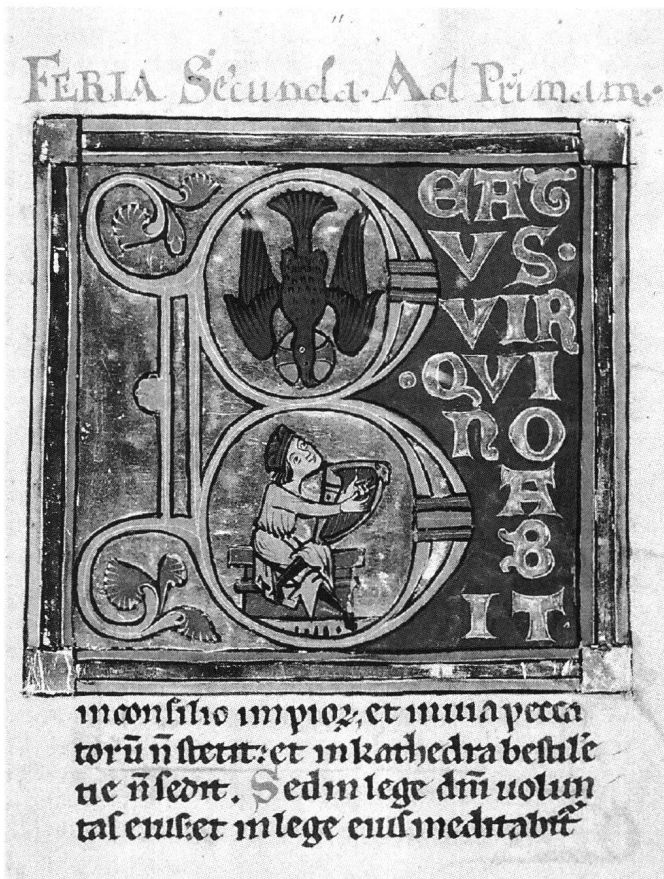 11
FERIA Secunda. Ad Primam.
B
EAT
VS.
VIR
.QVI
nO
A
B
IT.
in consilio impioꝝ, et in uia pecca
torū n̄ stetit: et in kathedra bestilē
tie n̄ sedit. Sed in lege dn̄i uolun
tas eius: et in lege eius meditabit᷑